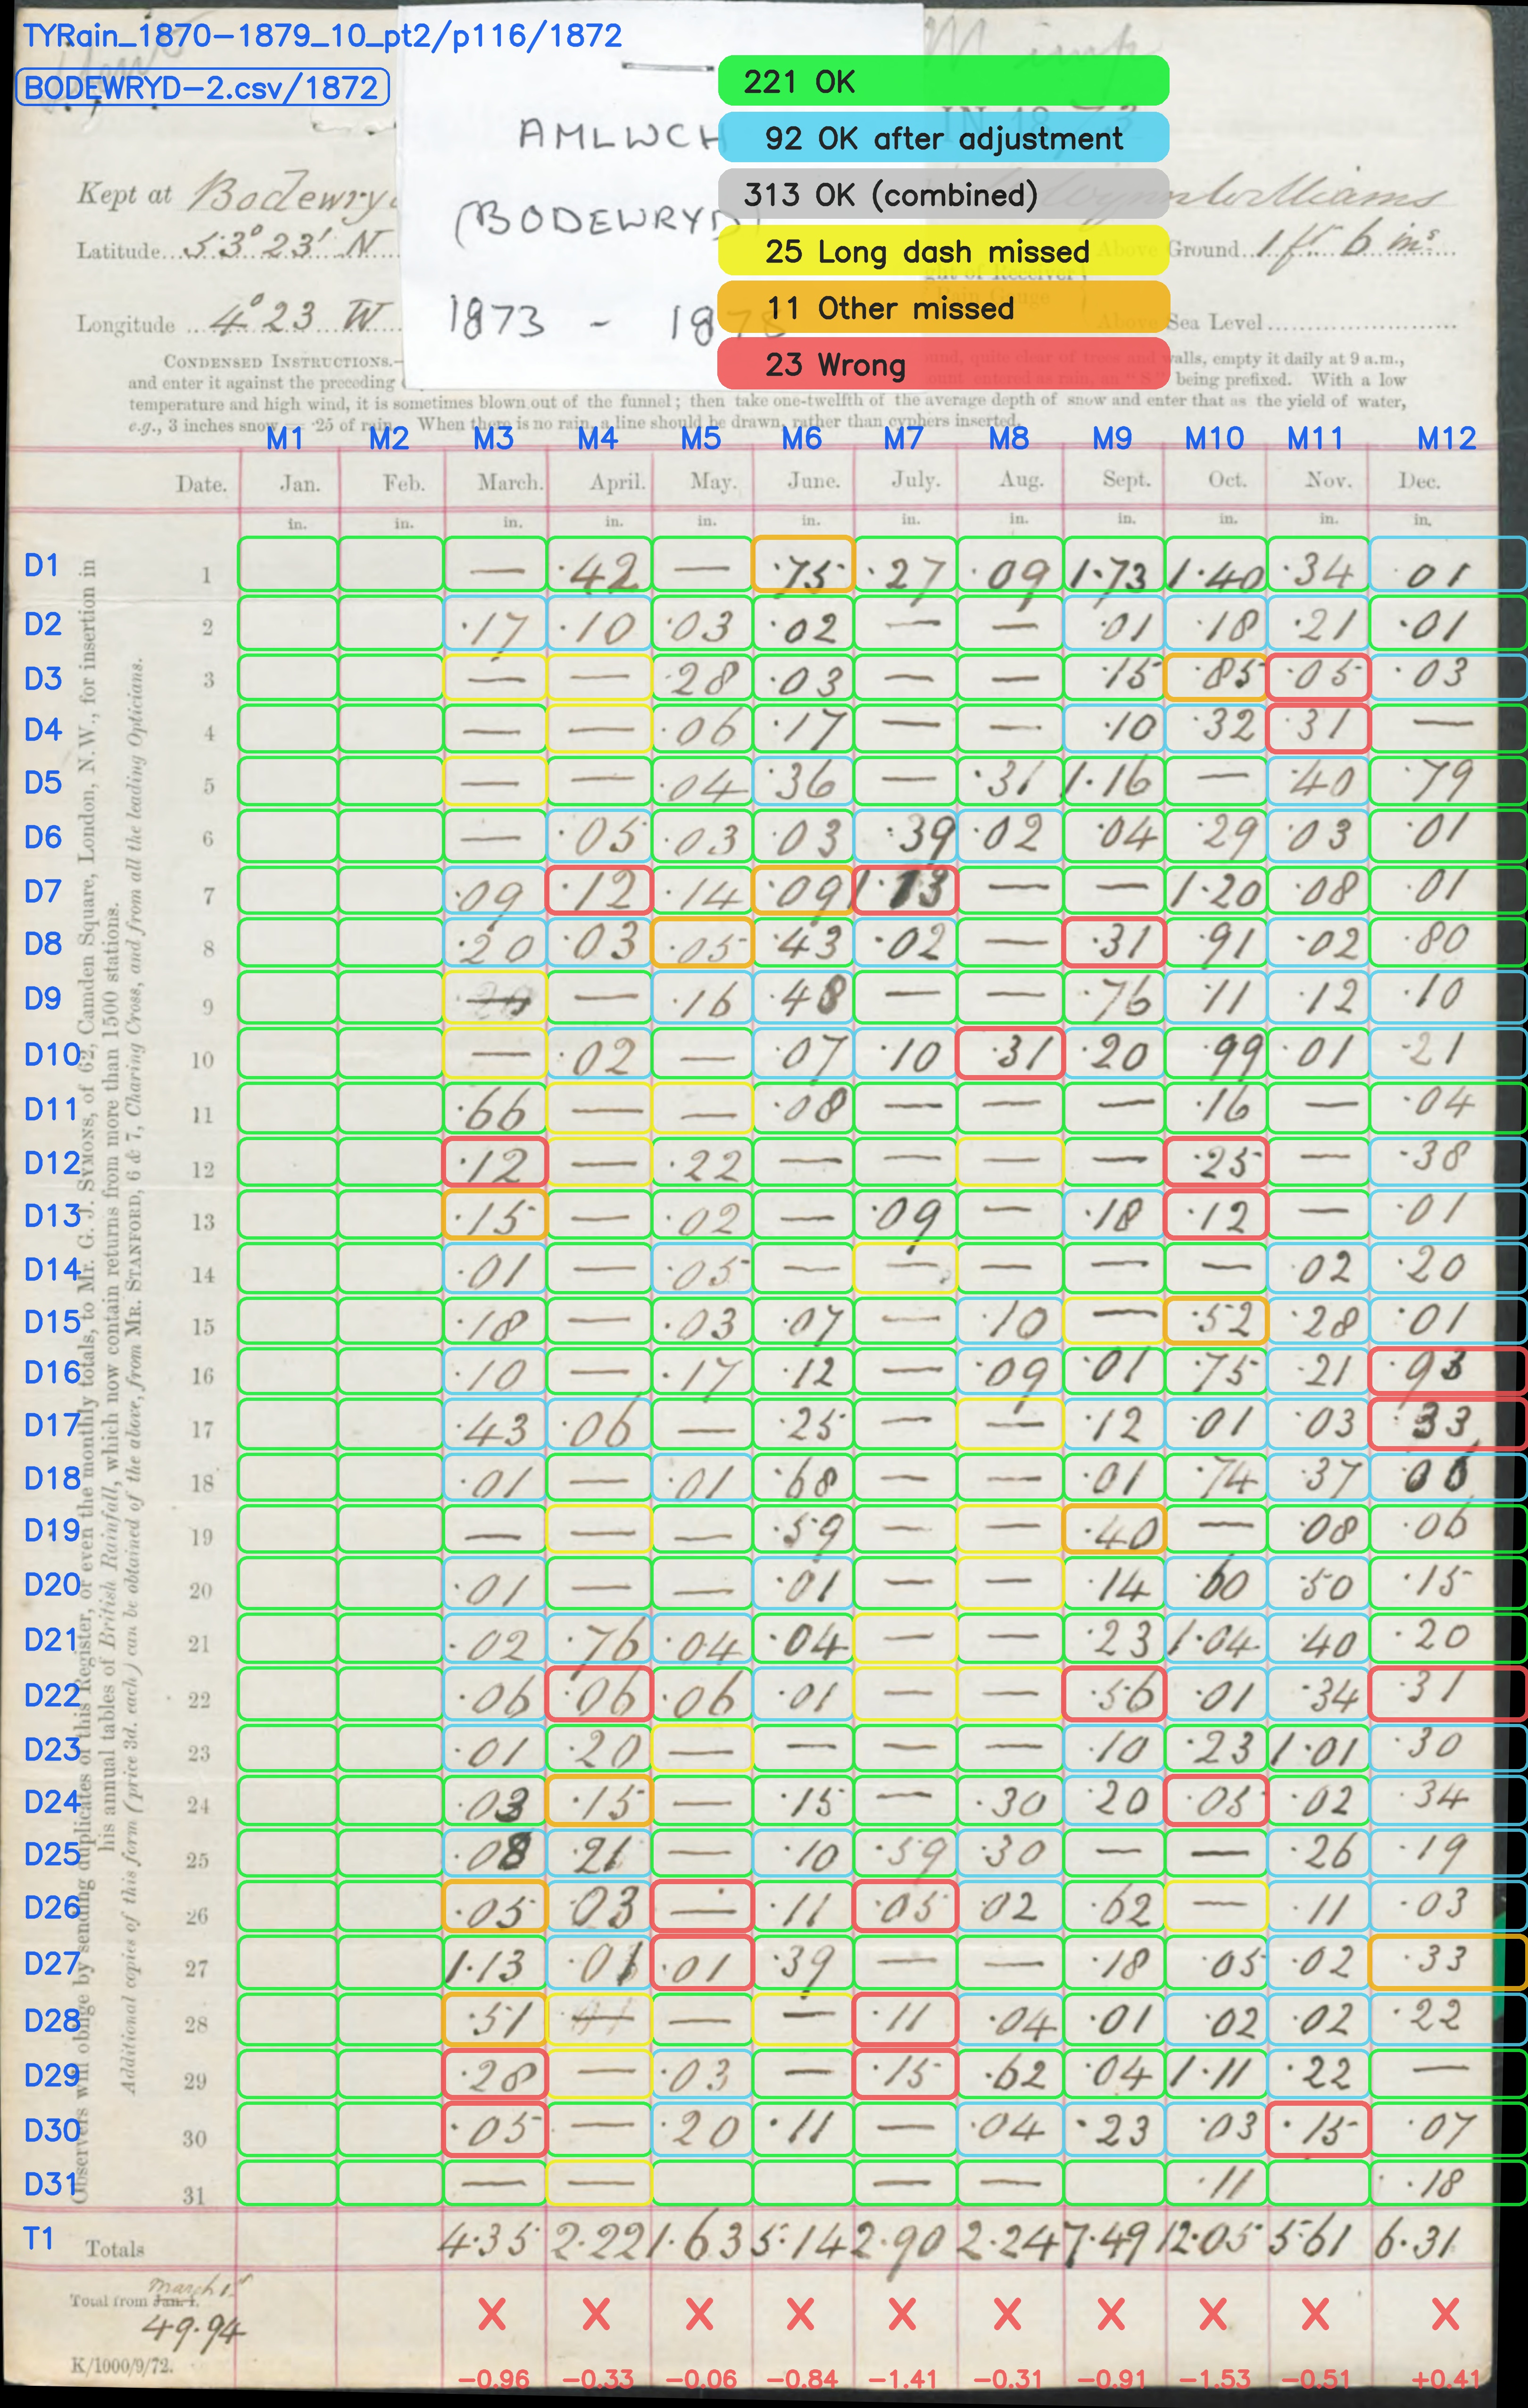 TYRain_1870-1879_10_pt2/p116/1872
BODEWRYD-2.csv/1872
221 OK
92 OK after adjustment
313 OK (combined)
25 Long dash missed
11 Other missed
23 Wrong
AMLWCH
(BODEWRYD)
1873 - 1878
IN 1873
Kept at Bodewry
Williams
Latitude 53° 23' N
Above Ground 1 ft 6 ins
Longitude 4° 23 W
Above Sea Level
CONDENSED INSTRUCTIONS.— walls, empty it daily at 9 a.m.,
and enter it against the preceding being prefixed. With a low
temperature and high wind, it is sometimes blown out of the funnel; then take one-twelfth of the average depth of snow and enter that as the yield of water,
e.g., 3 inches snow = ·25 of rain. When there is no rain, a line should be drawn, rather than cyphers inserted.
M1 M2 M3 M4 M5 M6 M7 M8 M9 M10 M11 M12
Date. Jan. Feb. March. April. May. June. July. Aug. Sept. Oct. Nov. Dec.
in. in. in. in. in. in. in. in. in. in. in. in.
D1 1 — ·42 — ·75 ·27 ·09 1·73 1·40 ·34 ·01
D2 2 ·17 ·10 ·03 ·02 — — ·01 ·18 ·21 ·01
D3 3 — — ·28 ·03 — — ·15 ·85 ·05 ·03
D4 4 — — ·06 ·17 — — ·10 ·32 ·31 —
D5 5 — — ·04 ·36 — ·31 1·16 — ·40 ·79
D6 6 — ·05 ·03 ·03 ·39 ·02 ·04 ·29 ·03 ·01
D7 7 ·09 ·12 ·14 ·09 1·13 — — 1·20 ·08 ·01
D8 8 ·20 ·03 ·05 ·43 ·02 — ·31 ·91 ·02 ·80
D9 9 — — ·16 ·48 — — ·76 ·11 ·12 ·10
D10 10 — ·02 — ·07 ·10 ·31 ·20 ·99 ·01 ·21
D11 11 ·66 — — ·08 — — — ·16 — ·04
D12 12 ·12 — ·22 — — — — ·25 — ·38
D13 13 ·15 — ·02 — ·09 — ·18 ·12 — ·01
D14 14 ·01 — ·05 — — — — — 02 ·20
D15 15 ·18 — ·03 ·07 — ·10 — ·52 ·28 ·01
D16 16 ·10 — ·17 ·12 — ·09 ·01 ·75 ·21 ·93
D17 17 ·43 ·06 — ·25 — — ·12 ·01 ·03 ·33
D18 18 ·01 — ·01 ·68 — — ·01 ·74 ·37 ·06
D19 19 — — — ·59 — — ·40 — ·08 ·06
D20 20 ·01 — — ·01 — — ·14 ·60 ·50 ·15
D21 21 ·02 ·76 ·04 ·04 — — ·23 1·04 ·40 ·20
D22 22 ·06 ·06 ·06 ·01 — — ·56 ·01 ·34 ·31
D23 23 ·01 ·20 — — — — ·10 ·23 1·01 ·30
D24 24 ·03 ·15 — ·15 — ·30 ·20 ·05 ·02 ·34
D25 25 ·08 ·21 — ·10 ·59 ·30 — — ·26 ·19
D26 26 ·05 ·03 — ·11 ·05 02 ·62 — ·11 ·03
D27 27 1·13 ·01 ·01 ·39 — — ·18 ·05 ·02 ·33
D28 28 ·51 — — ·11 ·04 ·01 ·02 ·02 ·22
D29 29 ·28 — ·03 — ·15 ·62 ·04 1·11 ·22 —
D30 30 ·05 — ·20 ·11 — ·04 ·23 ·03 ·15 ·07
D31 31 — — — — ·11 ·18
T1 Totals 4·35 2·22 1·63 5·14 2·90 2·24 7·49 12·05 5·61 6·31
March 1st
Total from Jan. 1.
49·94
K/1000/9/72.
-0.96 -0.33 -0.06 -0.84 -1.41 -0.31 -0.91 -1.53 -0.51 +0.41
Observers will oblige by sending duplicates of this Register, or even the monthly totals, to Mr. G. J. SYMONS, of 62, Camden Square, London, N.W., for insertion in
his annual tables of British Rainfall, which now contain returns from more than 1500 stations.
Additional copies of this form (price 3d. each) can be obtained of the above, from MR. STANFORD, 6 & 7, Charing Cross, and from all the leading Opticians.